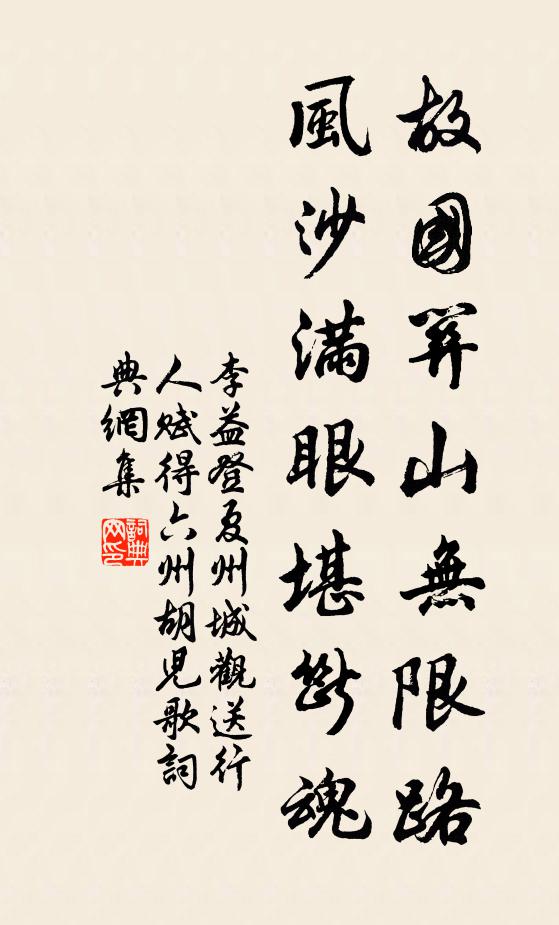 故國關山無限路
風沙滿眼堪斷魂
李益登夏州城觀送行
人賦得六州胡兒歌詞
典網集
詞典
网印